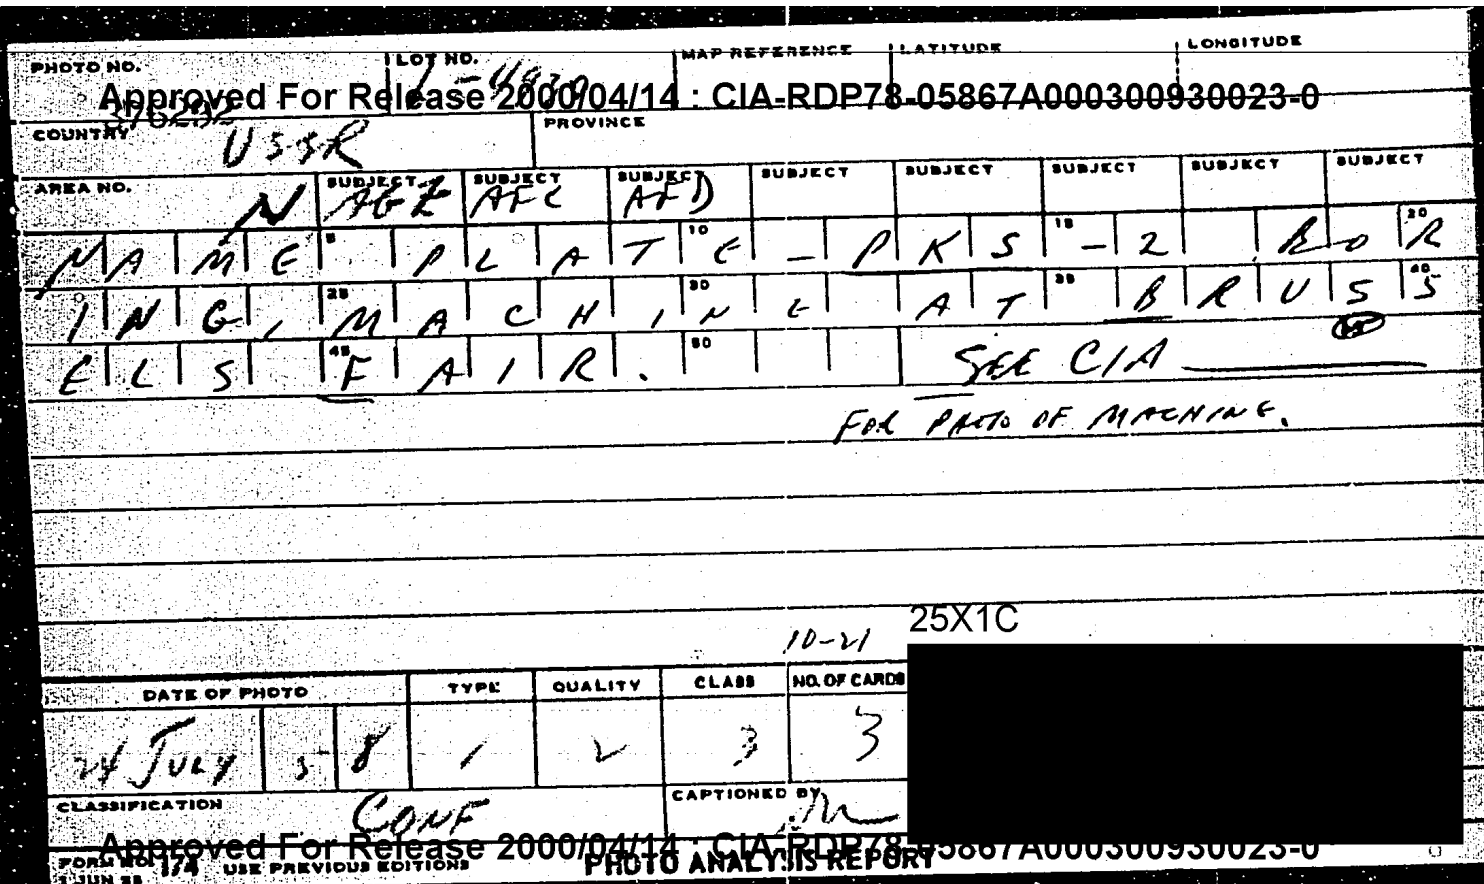 PHOTO NO. LOT NO. MAP REFERENCE LATITUDE LONGITUDE
Approved For Release 2000/04/14 : CIA-RDP78-05867A000300930023-0
COUNTRY USSR PROVINCE
AREA NO. N SUBJECT SUBJECT AFC SUBJECT AFD SUBJECT SUBJECT SUBJECT SUBJECT SUBJECT
NAME PLATE - PKS - 2 BOR
ING, MACHINE AT BRUSS
ELS FAIR. SEE CIA
FOR PHOTO OF MACHINE.
25X1C
10-21
DATE OF PHOTO TYPE QUALITY CLASS NO. OF CARDS
24 JULY 58 1 2 3 3
CLASSIFICATION CONF CAPTIONED BY
Approved For Release 2000/04/14 : CIA-RDP78-05867A000300930023-0
FORM NO. 174 USE PREVIOUS EDITIONS PHOTO ANALYSIS REPORT
1 JUN